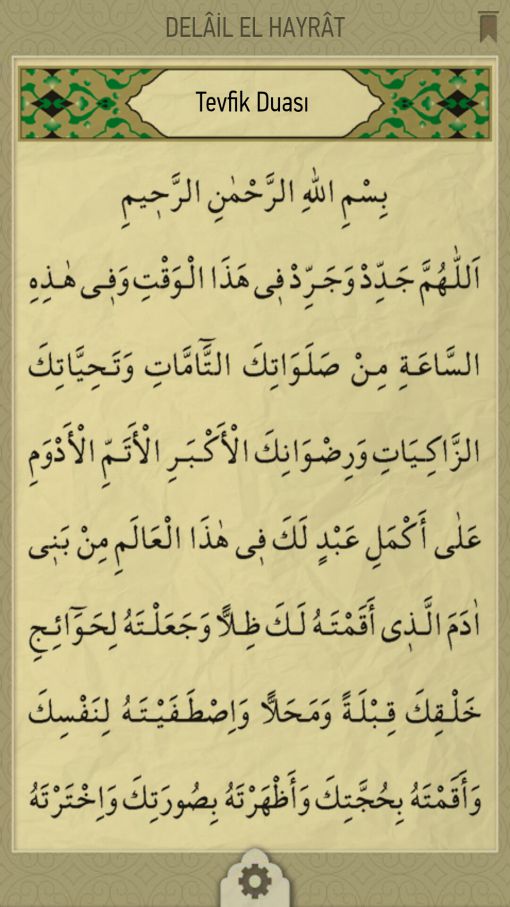 DELÂİL EL HAYRÂT
Tevfik Duası
بِسْمِ اللهِ الرَّحْمٰنِ الرَّحِيمِ
اَللّٰهُمَّ جَدِّدْ وَجَرِّدْ فِى هَذَا الْوَقْتِ وَفِى هٰذِهِ
السَّاعَةِ مِنْ صَلَوَاتِكَ التَّآمَّاتِ وَتَحِيَّاتِكَ
الزَّاكِيَاتِ وَرِضْوَانِكَ الْأَكْبَرِ الْأَتَمِّ الْأَدْوَمِ
عَلٰى أَكْمَلِ عَبْدٍ لَكَ فِى هٰذَا الْعَالَمِ مِنْ بَنِى
اٰدَمَ الَّذِى أَقَمْتَهُ لَكَ ظِلاًّ وَجَعَلْتَهُ لِحَوَٓائِجِ
خَلْقِكَ قِبْلَةً وَمَحَلاًّ وَاِصْطَفَيْتَهُ لِنَفْسِكَ
وَأَقَمْتَهُ بِحُجَّتِكَ وَأَظْهَرْتَهُ بِصُورَتِكَ وَاِخْتَرْتَهُ